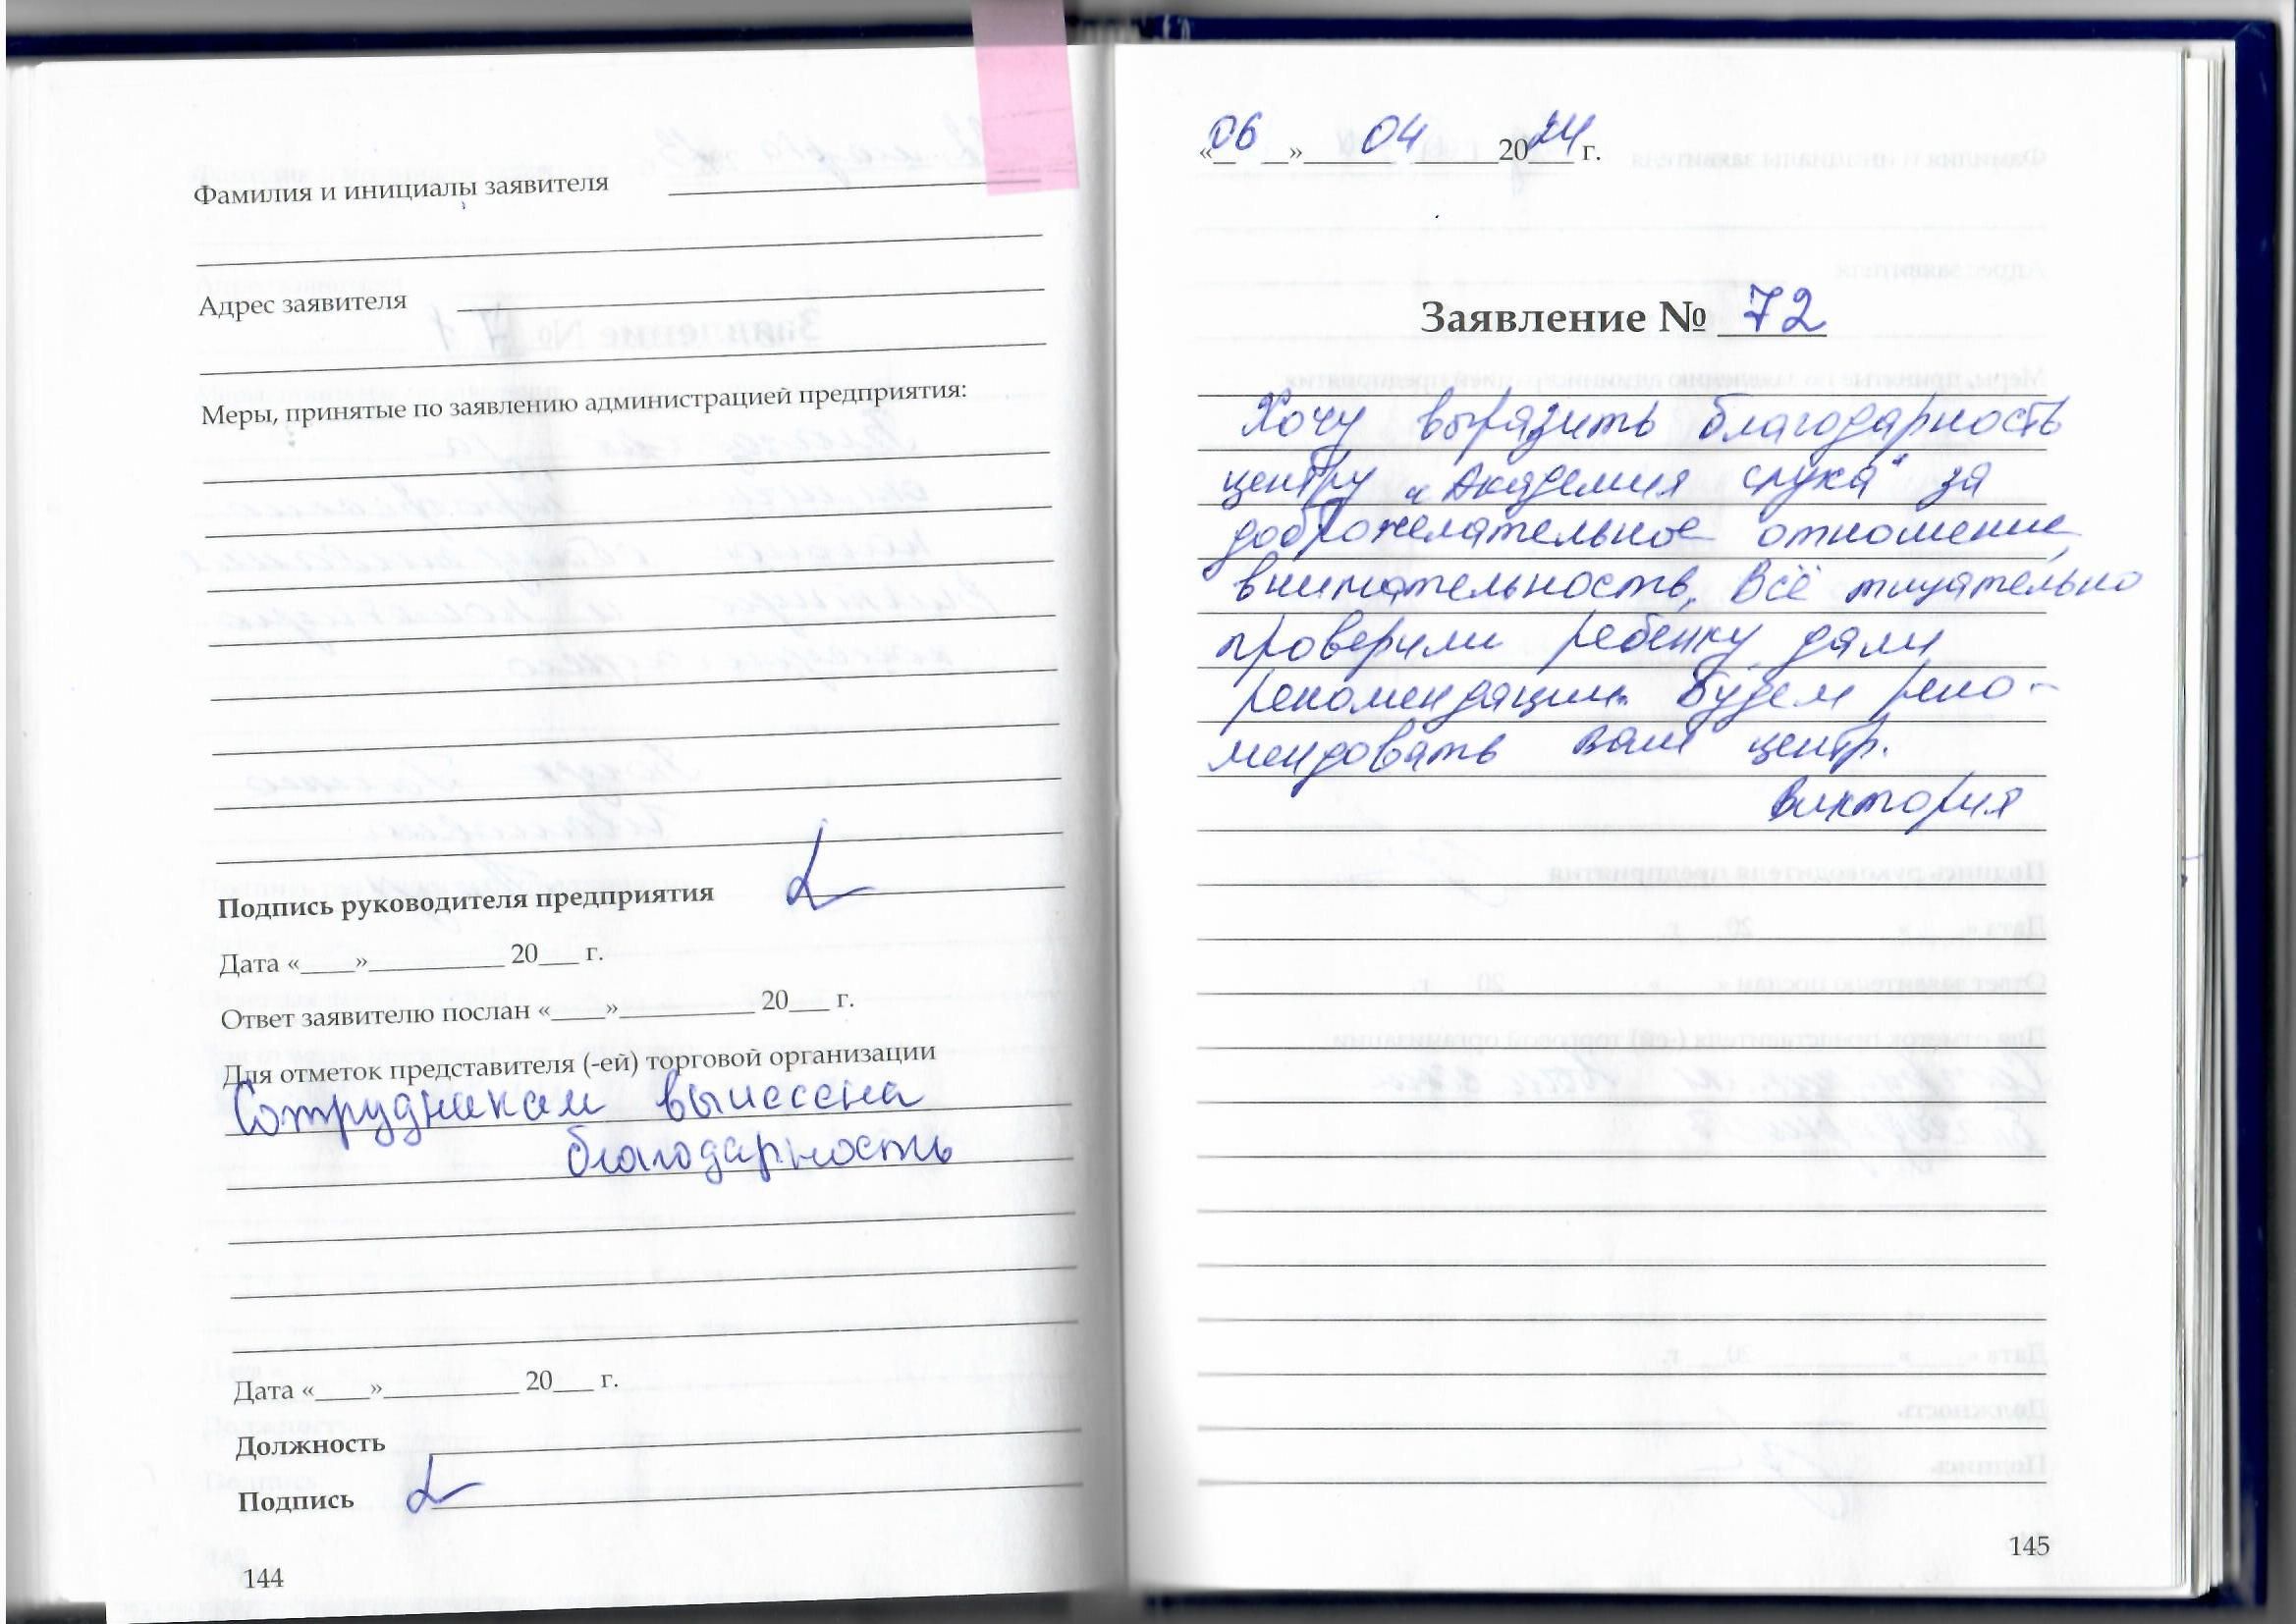 Фамилия и инициалы заявителя
Адрес заявителя
Меры, принятые по заявлению администрацией предприятия:
Подпись руководителя предприятия
Дата «____»__________ 20___ г.
Ответ заявителю послан «____»__________ 20___ г.
Для отметок представителя (-ей) торговой организации
Сотрудникам вынесена
благодарность
Дата «____»__________ 20___ г.
Должность
Подпись
144
«06» 04 2024 г.
Заявление № 72
Хочу выразить благодарность
центру "Академия слуха" за
доброжелательное отношение,
внимательность. Всё тщательно
проверили ребёнку, дали
рекомендации. Будем реко-
мендовать ваш центр.
Виктория
145